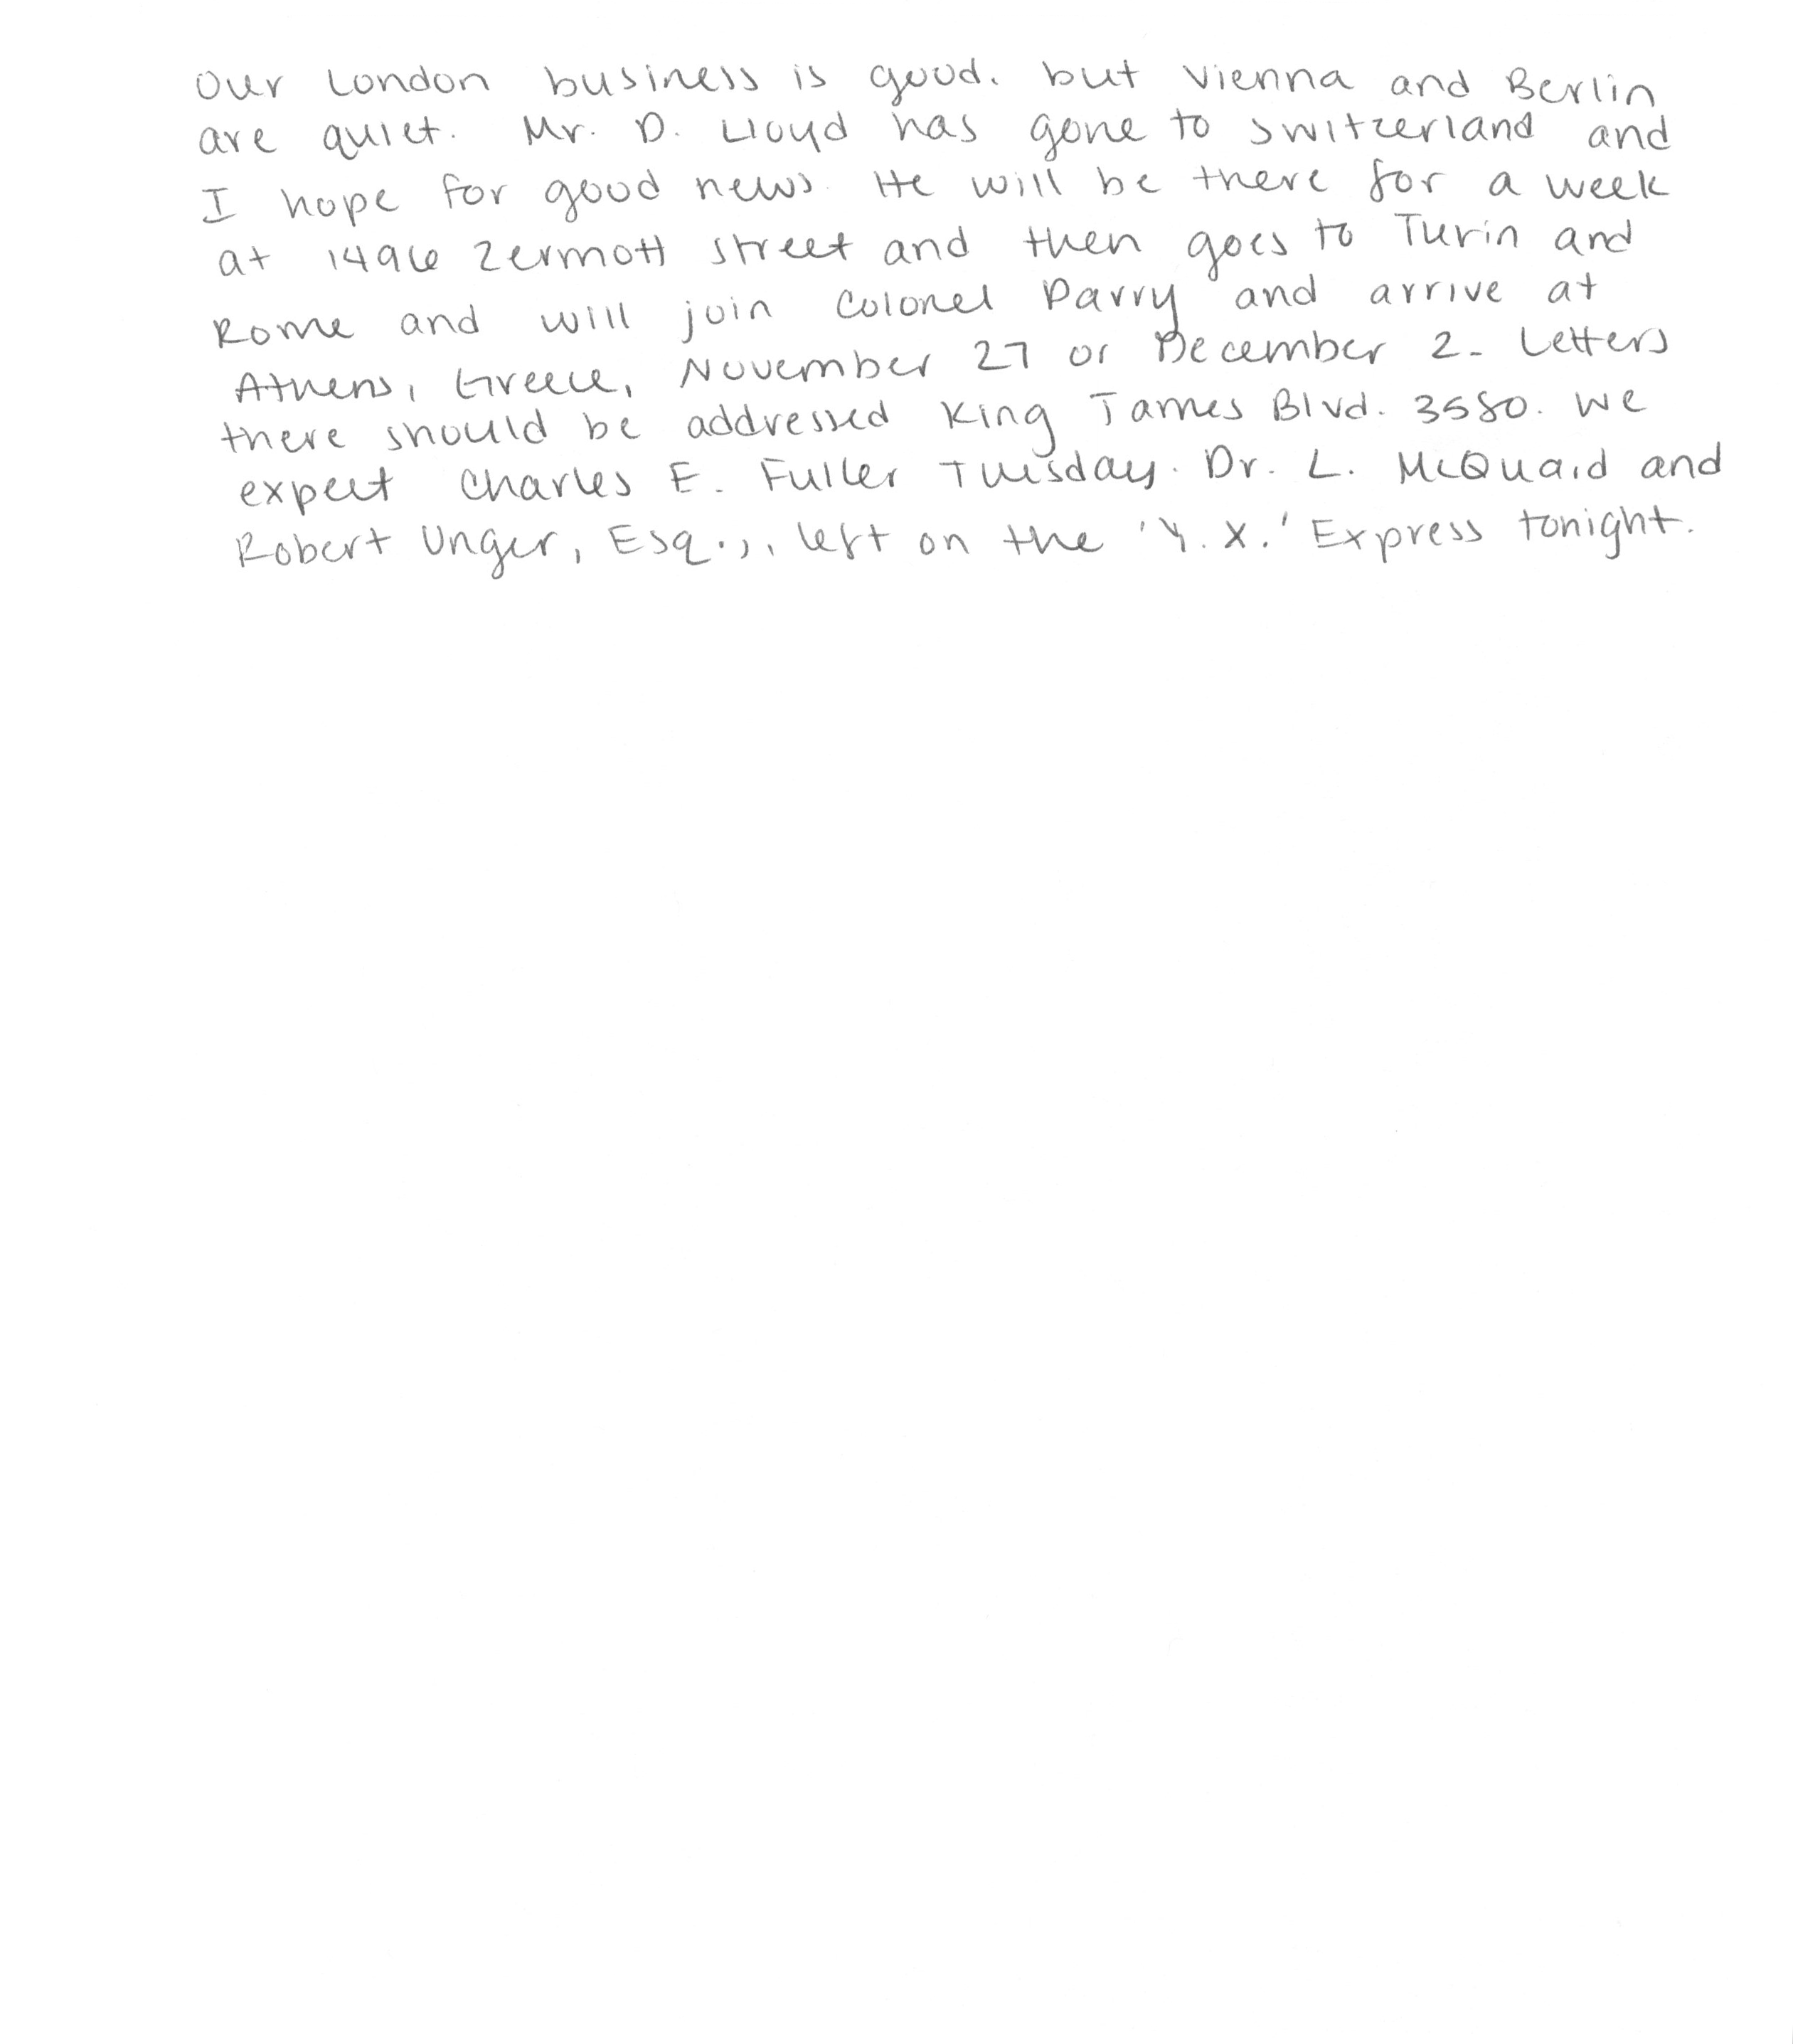 Our London business is good, but Vienna and Berlin
are quiet. Mr. D. Lloyd has gone to Switzerland and
I hope for good news. He will be there for a week
at 1496 Zermott street and then goes to Turin and
Rome and will join Colonel Parry and arrive at
Athens, Greece, November 27 or December 2. Letters
there should be addressed King James Blvd. 3580. We
expect Charles E. Fuller Tuesday. Dr. L. McQuaid and
Robert Unger, Esq., left on the 'Y. X.' Express tonight.